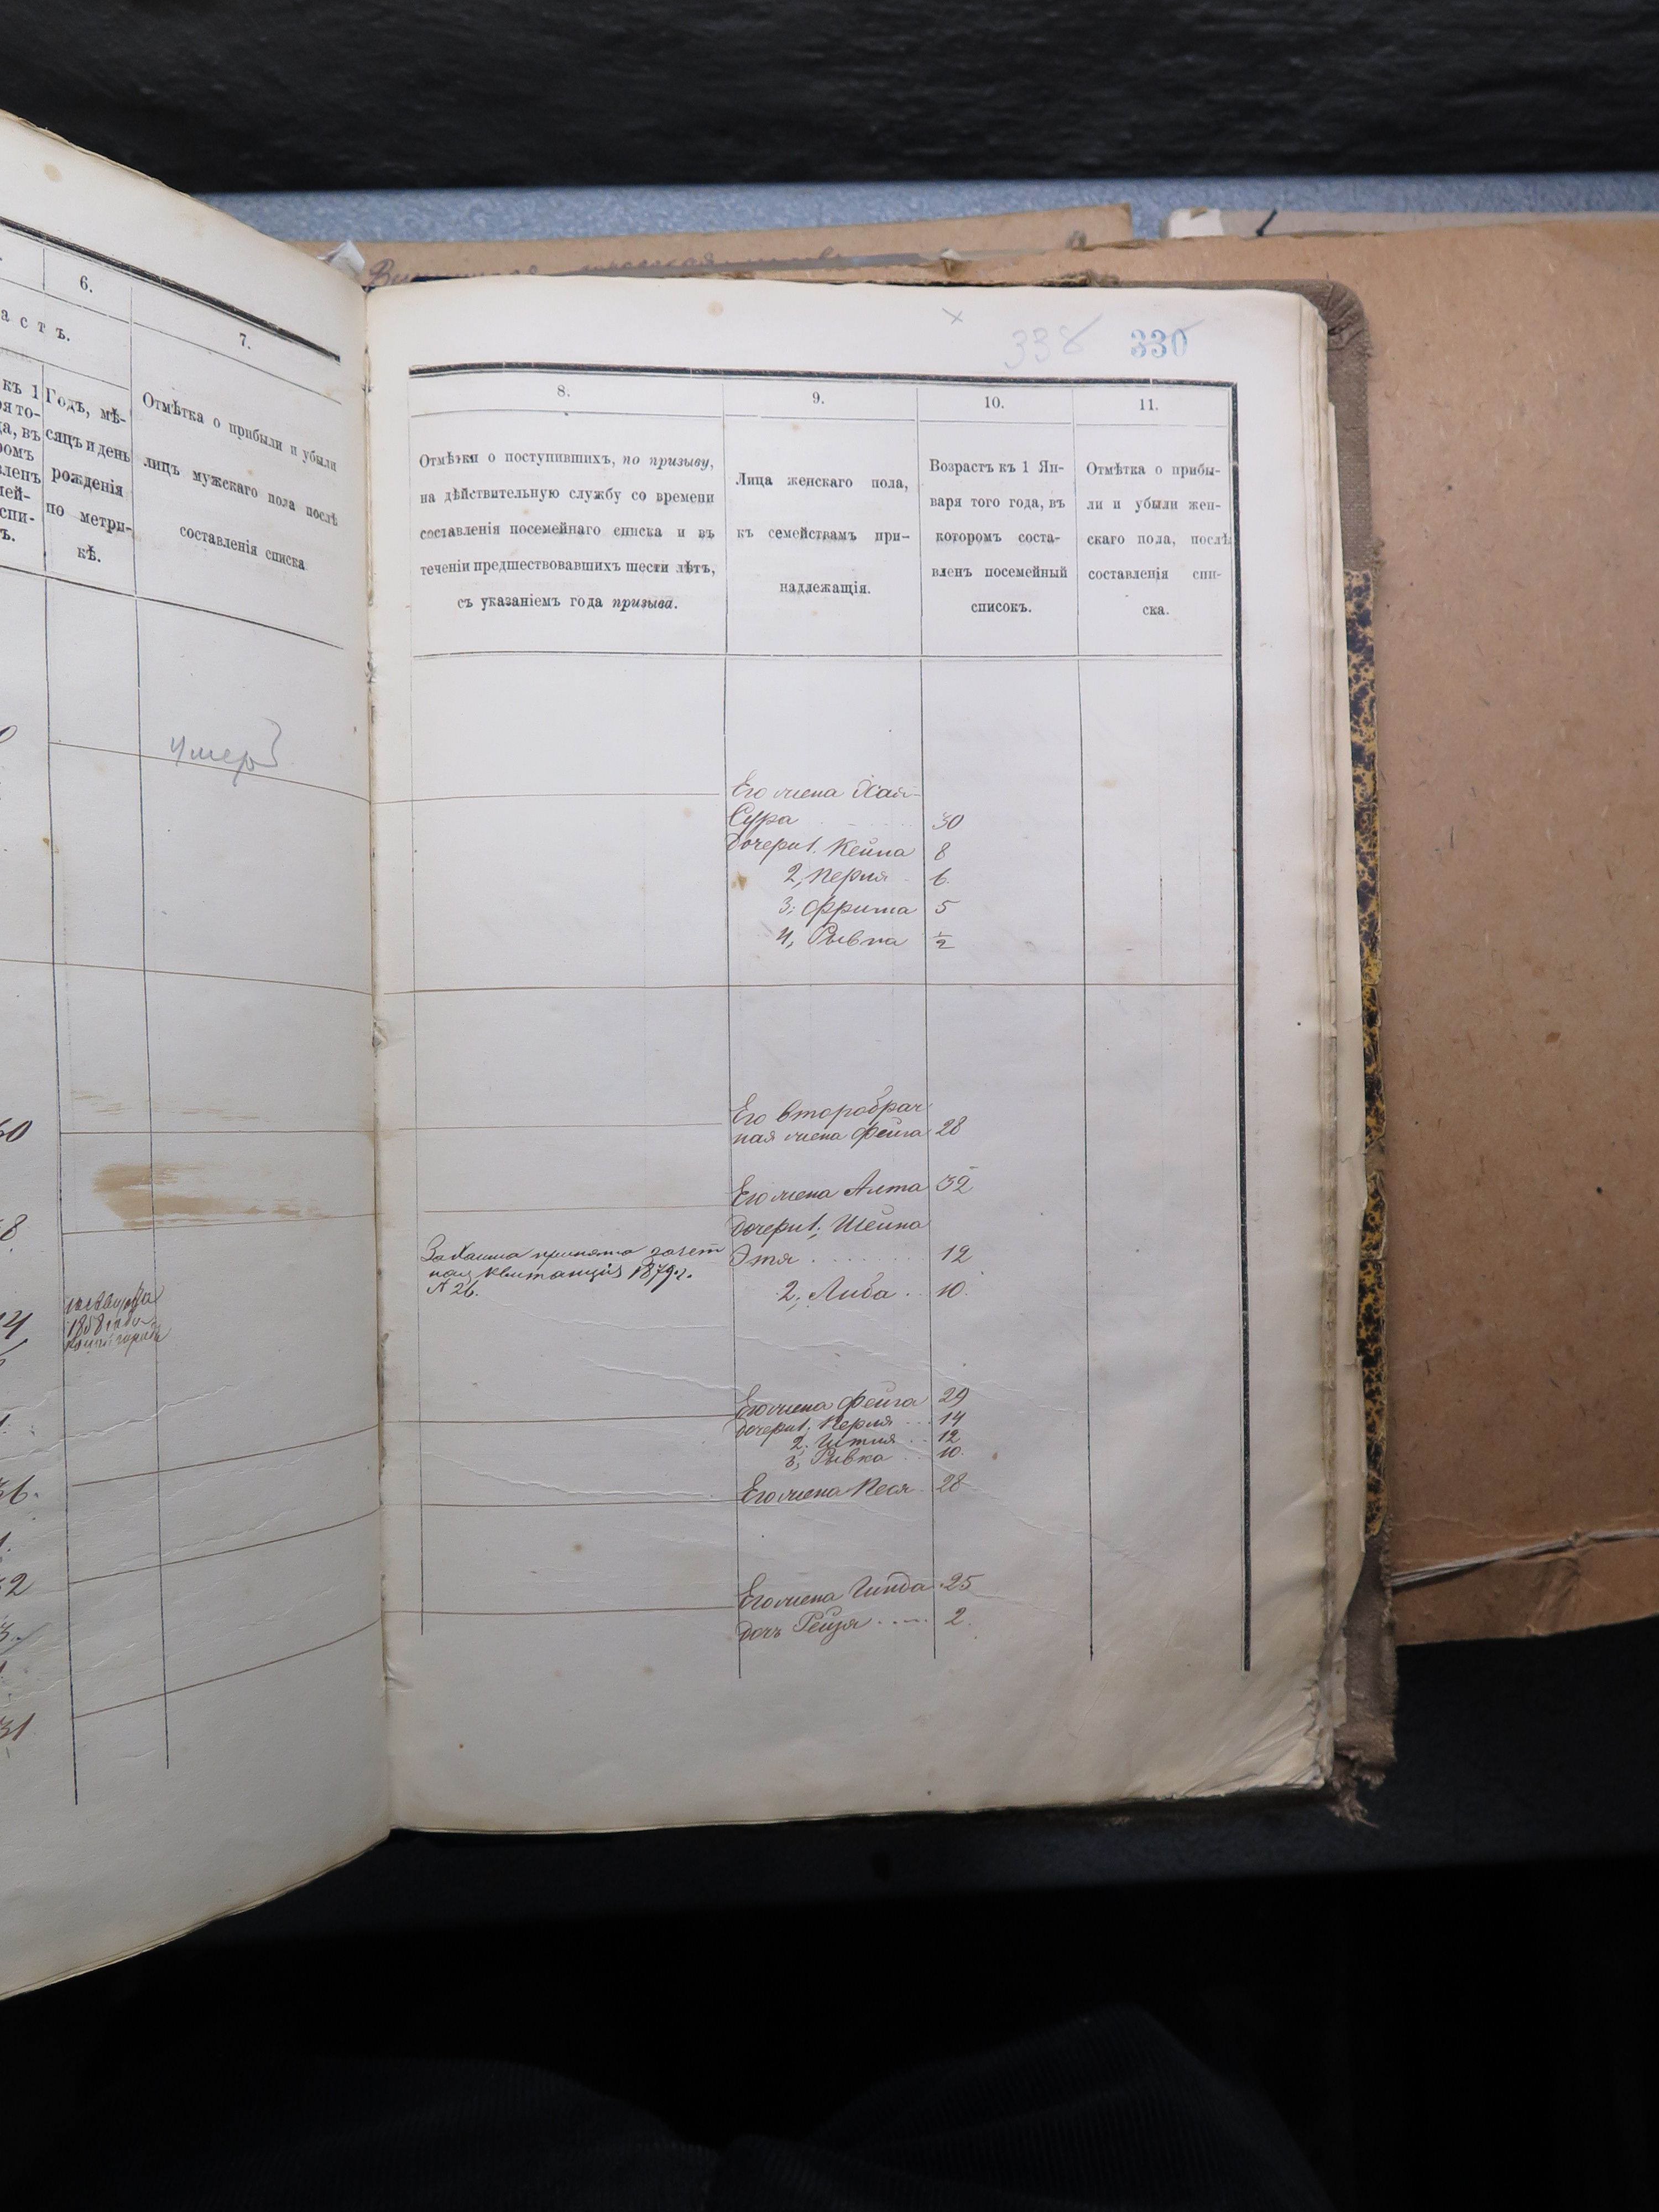 6.
7.
а с т ъ.
къ 1
Годъ, мѣ-
сяцъ и день
рожденія
по метри-
кѣ.
Отмѣтка о прибыли и убыли
лицъ мужскаго пола послѣ
составленія списка
умеръ
1858 года
60
8
36.
52
31
338 330
8.
9.
10.
11.
Отмѣтки о поступившихъ, по призыву,
на дѣйствительную службу со времени
составленія посемейнаго списка и въ
теченіи предшествовавшихъ шести лѣтъ,
съ указаніемъ года призыва.
Лица женскаго пола,
къ семействамъ при-
надлежащія.
Возрастъ къ 1 Ян-
варя того года, въ
которомъ соста-
вленъ посемейный
списокъ.
Отмѣтка о прибы-
ли и убыли жен-
скаго пола, послѣ
составленія спи-
ска.
Его жена Хая-
Сура 30
Дочери 1. Кейла 8
2, Перля 6.
3; Фрима 5
4, Рывка 1/2
Его второбрач
ная жена Фейга 28
Его жена Алта 32
Дочери 1; Шейна
Этя 12
2; Либа 10.
За Хаима принята зачет
ная квитанція 1879 г.
№ 26.
Его жена Фейга 29
Дочери 1; Перля 14
2. Итля 12
3, Рывка 10.
Его жена Песя 28
Его жена Гинда 25
дочь Рейзя 2.